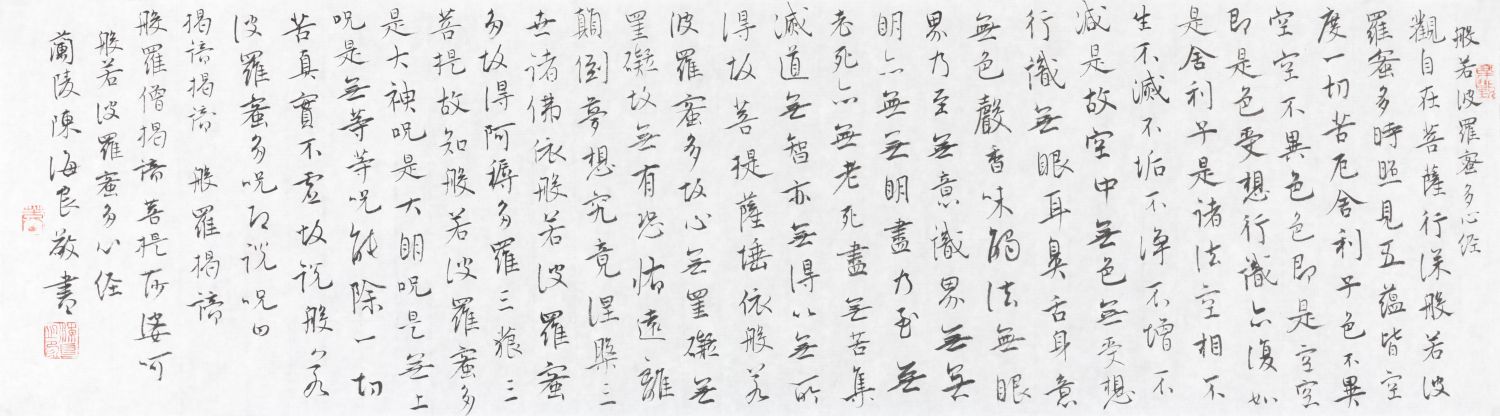 般若波羅蜜多心経
觀自在菩薩行深般若波
羅蜜多時照見五蘊皆空
度一切苦厄舍利子色不異
空空不異色色即是空空
即是色受想行識亦復如
是舍利子是諸法空相不
生不滅不垢不淨不增不
減是故空中無色無受想
行識無眼耳鼻舌身意
無色聲香味觸法無眼
界乃至無意識界無無
明亦無無明盡乃至無
老死亦無老死盡無苦集
滅道無智亦無得以無所
得故菩提薩埵依般若
波羅蜜多故心無罣礙無
罣礙故無有恐怖遠離
顛倒夢想究竟涅槃三
世諸佛依般若波羅蜜
多故得阿耨多羅三藐三
菩提故知般若波羅蜜多
是大神咒是大明咒是無上
咒是無等等咒能除一切
苦真實不虛故說般若
波羅蜜多咒即說咒曰
揭諦揭諦 般羅揭諦
般羅僧揭諦菩提莎婆呵
般若波羅蜜多心経
蘭陵陳海良敬書